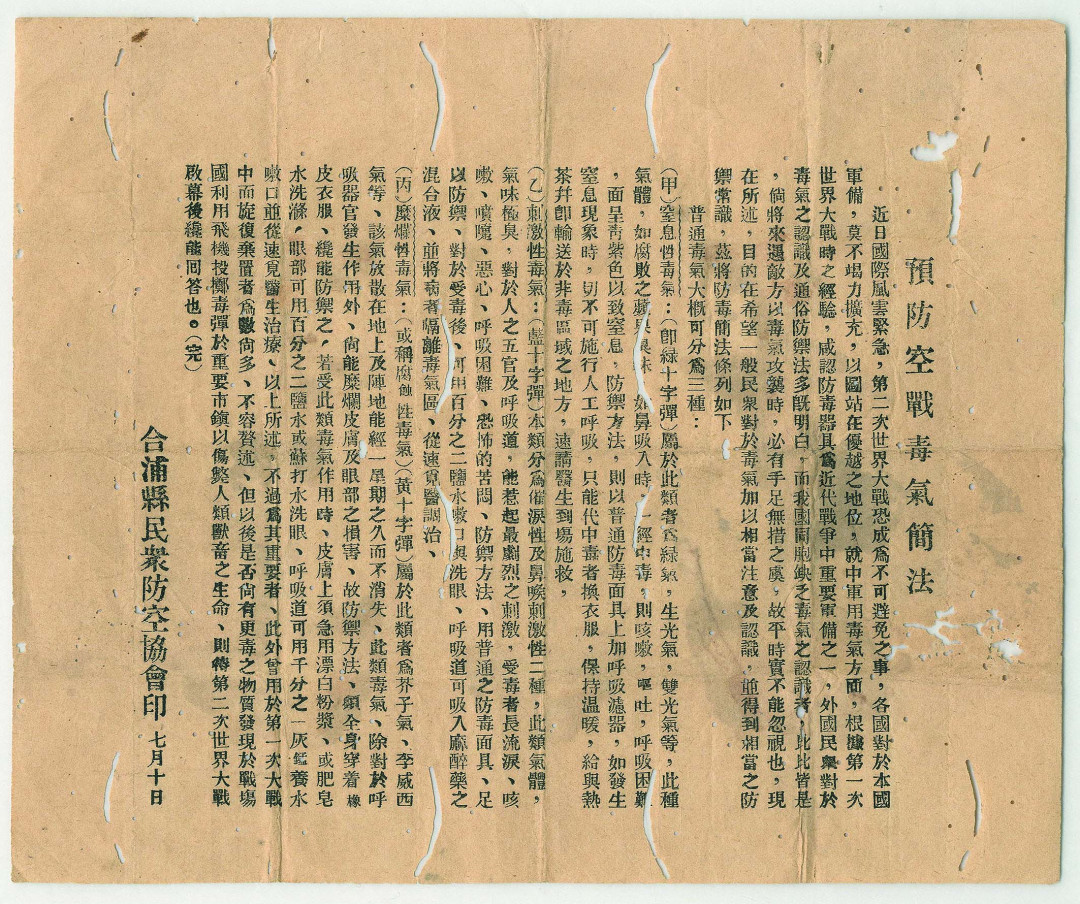 預防空戰毒氣簡法
近日國際風雲緊急，第二次世界大戰恐成爲不可避免之事，各國對於本國
軍備，莫不竭力擴充，以圖站在優越之地位，就中軍用毒氣方面，根據第一次
世界大戰時之經驗，咸認防毒器具爲近代戰爭中重要軍備之一，外國民衆對於
毒氣之認識及通俗防禦法多旣明白，而我國同胞缺乏毒氣之認識者，比比皆是
，倘將來遇敵方以毒氣攻襲時，必有手足無措之虞，故平時實不能忽視也，現
在所述，目的在希望一般民衆對於毒氣加以相當注意及認識，並得到相當之防
禦常識，茲將防毒簡法條列如下
普通毒氣大概可分爲三種：
(甲)窒息性毒氣：(卽綠十字彈)屬於此類者爲綠氣，生光氣，雙光氣等，此種
氣體，如腐敗之蘋果臭味，如鼻吸入時，一經中毒，則咳嗽，嘔吐，呼吸困難
，面呈靑紫色以致窒息，防禦方法，則以普通防毒面具上加呼吸濾器，如發生
窒息現象時，切不可施行人工呼吸，只能代中毒者換衣服，保持温暖，給與熱
茶幷卽輸送於非毒區域之地方，速請醫生到塲施救，
(乙)刺激性毒氣：(藍十字彈)本類分爲催淚性及鼻喉刺激性二種，此類氣體，
氣味極臭，對於人之五官及呼吸道，能惹起最劇烈之刺激，受毒者長流淚、咳
嗽、噴嚏、惡心、呼吸困難、恐怖的苦悶、防禦方法、用普通之防毒面具、足
以防禦、對於受毒後、可用百分之二鹽水嗽口與洗眼、呼吸道可吸入麻醉藥之
混合液、並將病者隔離毒氣區、從速覓醫調治、
(丙)糜爛性毒氣：(或稱腐蝕性毒氣)(黃十字彈)屬於此類者爲芥子氣、李威西
氣等、該氣放散在地上及陣地能經一星期之久而不消失、此類毒氣、除對於呼
吸器官發生作用外、尙能糜爛皮膚及眼部之損害、故防禦方法、須全身穿着橡
皮衣服、纔能防禦之，若受此類毒氣作用時、皮膚上須急用漂白粉漿、或肥皂
水洗滌，眼部可用百分之二鹽水或蘇打水洗眼、呼吸道可用千分之一灰錳養水
嗽口並從速覓醫生治療、以上所述，不過爲其重要者、此外曾用於第一次大戰
中而旋復棄置者爲數尙多、不容贅述、但以後是否尙有更毒之物質發現於戰塲
國利用飛機投擲毒彈於重要市鎭以傷斃人類獸畜之生命、則待第二次世界大戰
啟幕後纔能囘答也。(完)
合浦縣民衆防空協會印 七月十日